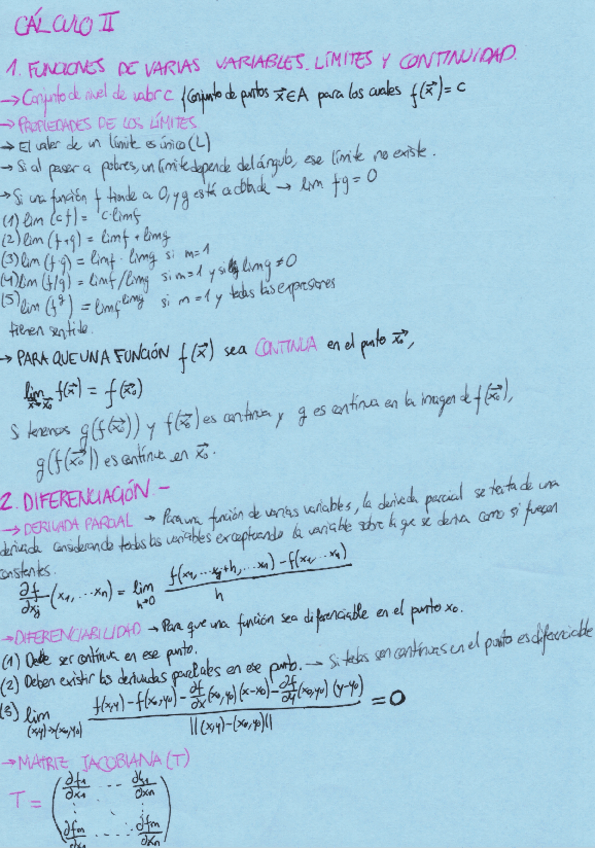 CÁLCULO II
1. FUNCIONES DE VARIAS VARIABLES. LÍMITES Y CONTINUIDAD.
→ Conjunto de nivel de valor c {Conjunto de puntos x⃗ ∈ A para los cuales f(x⃗) = c
→ PROPIEDADES DE LOS LÍMITES
→ El valor de un límite es único (L)
→ Si al pasar a polares, un límite depende del ángulo, ese límite no existe.
→ Si una función f tiende a 0, y g está acotada → lim fg = 0
(1) lim (cf) = c·limf
(2) lim (f+g) = limf + limg
(3) lim (f·g) = limf · limg si m=1
(4) lim (f/g) = limf/limg si m=1 y si limg ≠ 0
(5) lim (f^g) = limf^limg si m=1 y todas las expresiones
tienen sentido.
→ PARA QUE UNA FUNCIÓN f(x⃗) sea CONTINUA en el punto x⃗₀,
lim x⃗→x⃗₀ f(x⃗) = f(x⃗₀)
Si tenemos g(f(x⃗₀)) y f(x⃗₀) es continua y g es continua en la imagen de f(x⃗₀),
g(f(x⃗₀)) es continua en x⃗₀.
2. DIFERENCIACIÓN.-
→ DERIVADA PARCIAL → Para una función de varias variables, la derivada parcial se trata de una
derivada considerando todas las variables exceptuando la variable sobre la que se deriva como si fuesen
constantes.
∂f/∂xj (x₁, ...xn) = lim h→0 (f(x₁, ...xj+h, ...xn) - f(x₁, ...xn)) / h
→ DIFERENCIABILIDAD → Para que una función sea diferenciable en el punto x₀.
(1) Debe ser continua en ese punto.
(2) Deben existir las derivadas parciales en ese punto. → Si todas son continuas en el punto es diferenciable
(3) lim (x,y)→(x₀,y₀) (f(x,y) - f(x₀,y₀) - ∂f/∂x (x₀,y₀)(x-x₀) - ∂f/∂y (x₀,y₀)(y-y₀)) / ||(x,y)-(x₀,y₀)|| = 0
→ MATRIZ JACOBIANA (T)
T = (∂f₁/∂x₁ ... ∂f₁/∂xn
∂fm/∂x₁ ... ∂fm/∂xn)